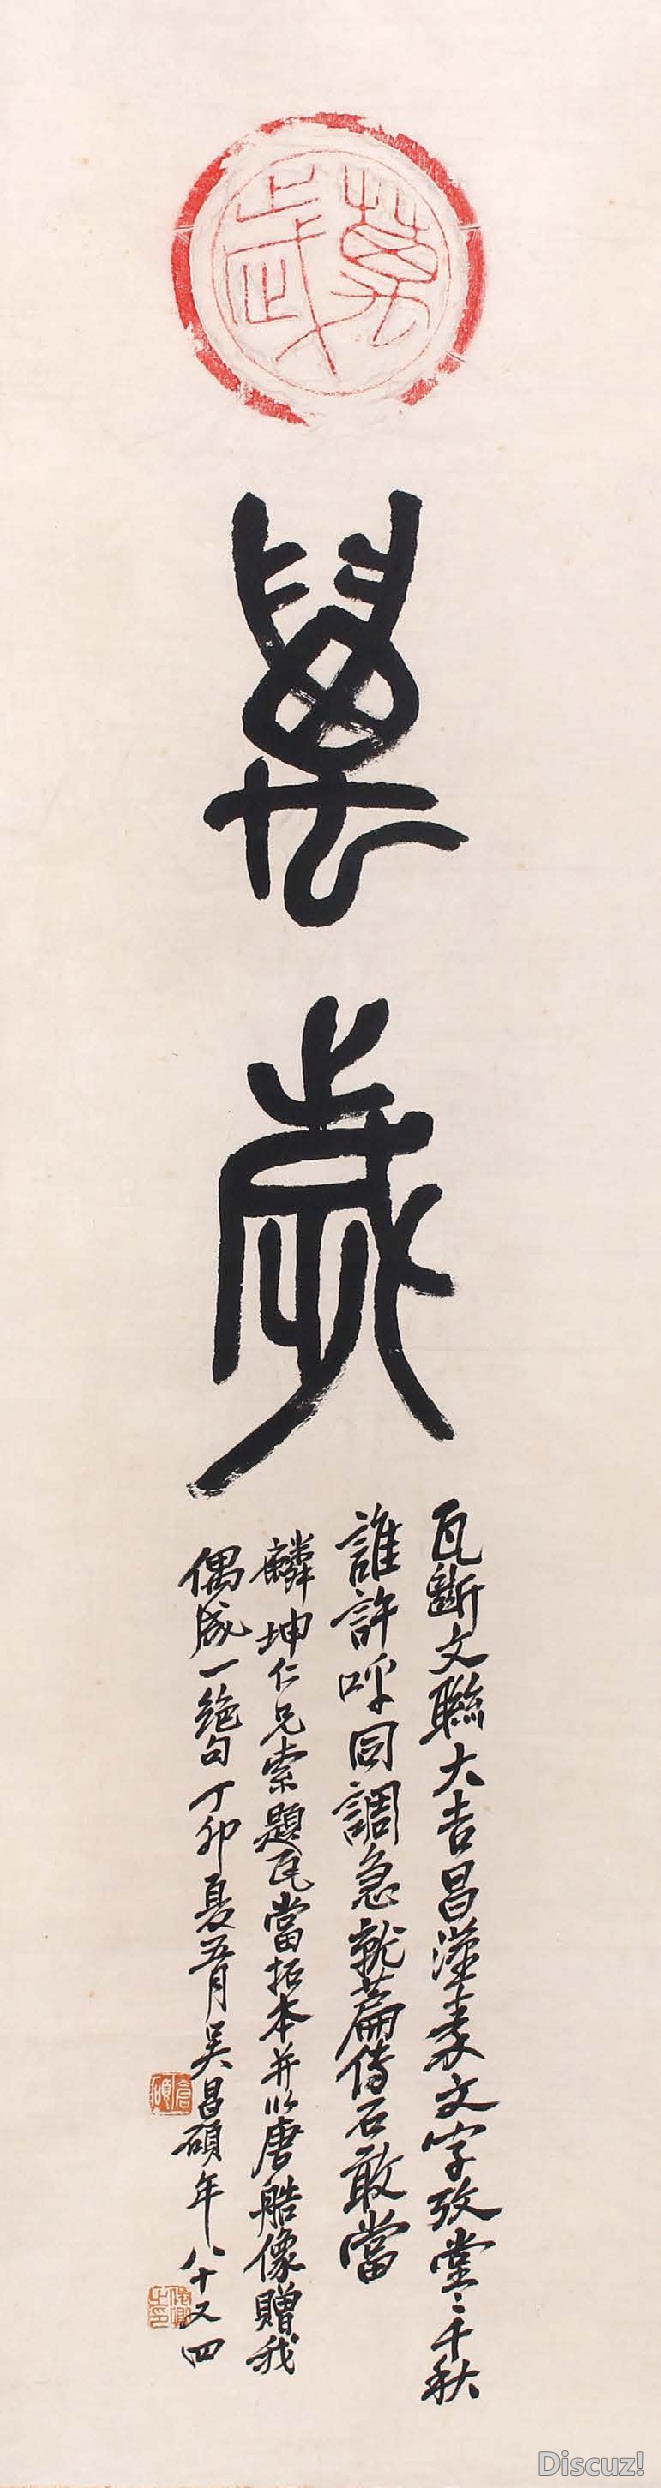 萬歲
萬歲
瓦斷文聯大吉昌漢家文字致堂〻千秋
誰許呼同調急就篇傳石敢當
麟坤仁兄索題瓦當拓本并以唐造像贈我
偶成一絕句丁卯夏五月吳昌碩年八十又四
Discuz!